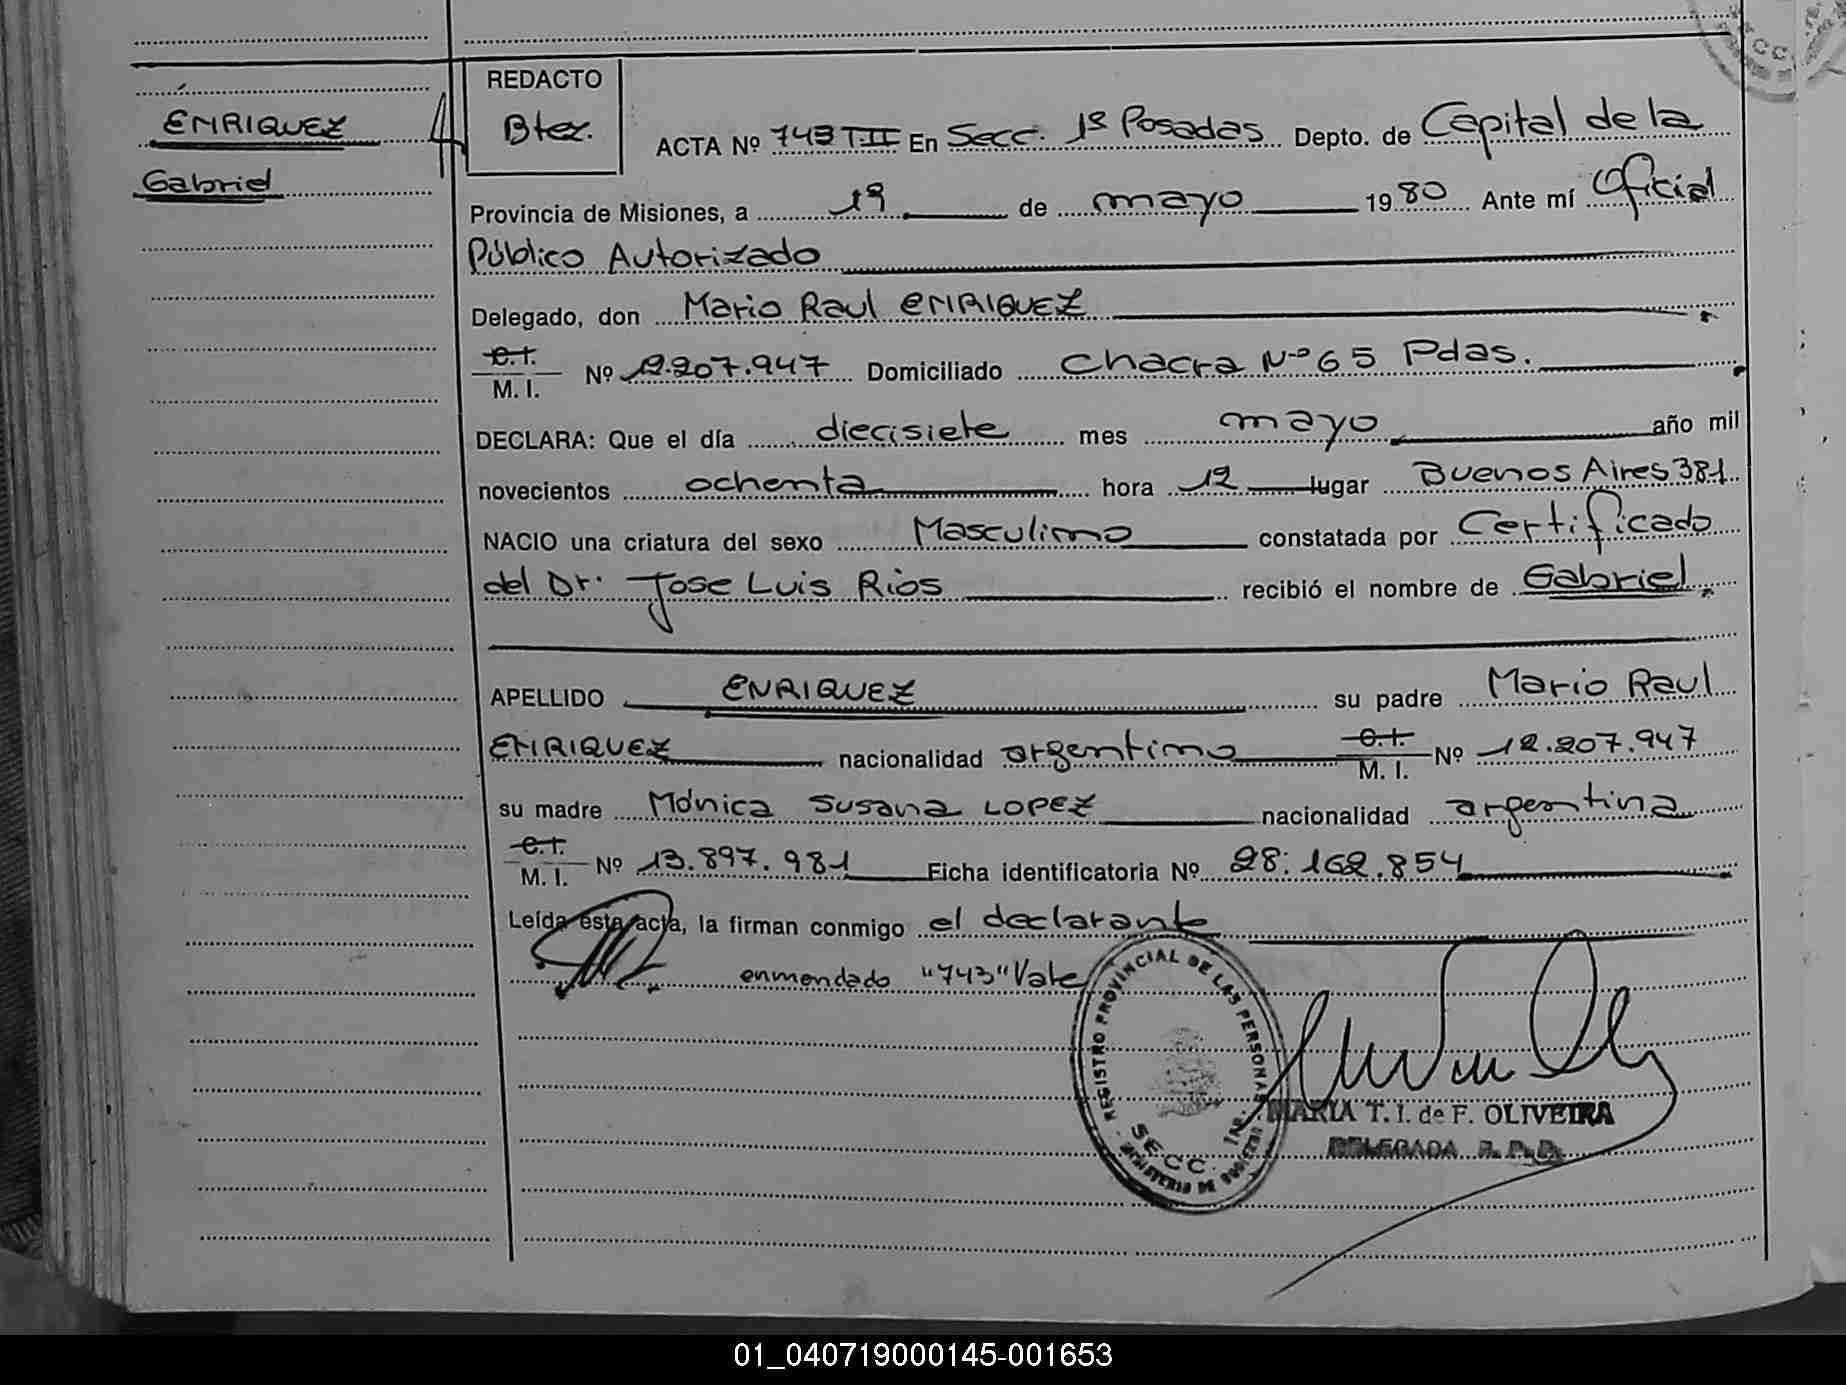 ENRIQUEZ
Gabriel
REDACTO
Btez.
ACTA Nº 743 TII En Secc. 1ª Posadas Depto. de Capital de la
Provincia de Misiones, a 19 de mayo 1980 Ante mí Oficial
Público Autorizado
Delegado, don Mario Raul ENRIQUEZ
C.I.
M. I. Nº 12.207.947 Domiciliado Chacra Nº 65 Pdas.
DECLARA: Que el día diecisiete mes mayo año mil
novecientos ochenta hora 12 lugar Buenos Aires 381
NACIO una criatura del sexo Masculino constatada por Certificado
del Dr. Jose Luis Rios recibió el nombre de Gabriel
APELLIDO ENRIQUEZ su padre Mario Raul
ENRIQUEZ nacionalidad argentino C.I. M. I. Nº 12.207.947
su madre Mónica Susana LOPEZ nacionalidad argentina
C.I.
M. I. Nº 13.897.981 Ficha identificatoria Nº 28.162.854
Leída esta acta, la firman conmigo el declarante
enmendado "743" Vale
REGISTRO PROVINCIAL DE LAS PERSONAS
SECC. 1ª
MARIA T. I. de F. OLIVEIRA
DELEGADA R. P. P.
01_040719000145-001653